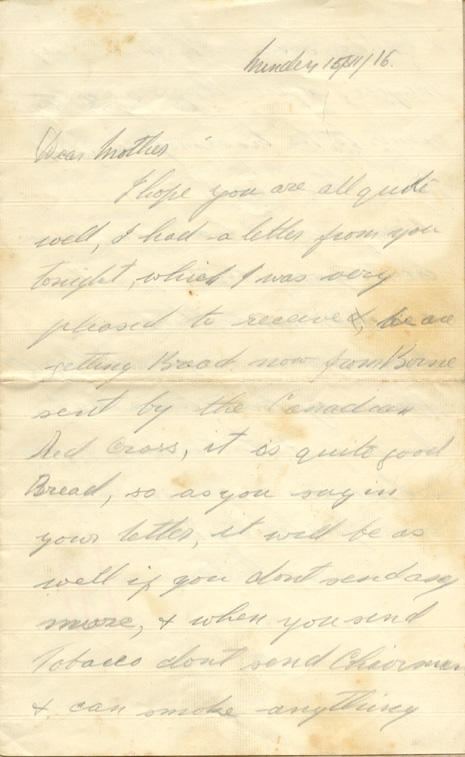 Minden 16/11/16.
Dear Mother
I hope you are all quite
well, I had a letter from you
tonight, which I was very
pleased to receive, we are
getting Bread now from Berne
sent by the Canadian
Red Cross, it is quite good
Bread, so as you say in
your letter, it will be as
well if you dont send any
more, & when you send
Tobacco dont send Chairmen
& can smoke anything